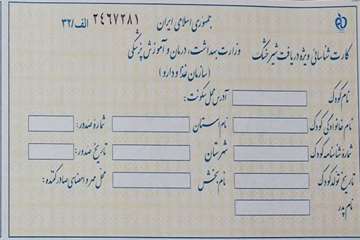 جمهوری اسلامی ایران
۲۴۶۷۲۸۱ الف/۳۲
کارت شناسائی ویژه دریافت شیر خشک
وزارت بهداشت، درمان و آموزش پزشکی
(سازمان غذا و دارو)
نام کودک
آدرس محل سکونت:
نام خانوادگی کودک
نام استان
شماره صدور:
شماره شناسنامه کودک
شهرستان
تاریخ صدور:
تاریخ تولد کودک
نام بخش
محل مهر و امضای صادر کننده:
نام پدر